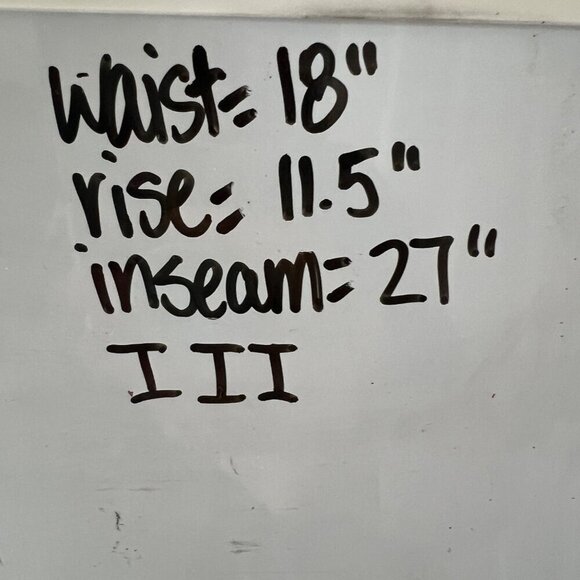 waist= 18"
rise= 11.5"
inseam= 27"
III